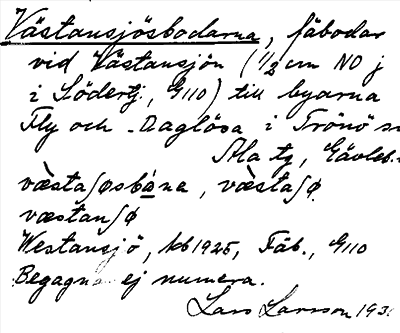 Västansjösbodarna, fäbodar
vid Västansjön (1/2 cm NO j
i Södertj., G110) till byarna
Fly och Daglösa i Trönö sn
Ala tg, Gävleb.
væsta∫øsbàna, væ̀sta∫ø
væstan∫ø
Westansjö, kb 1925, Fäb., G110
Begagnas ej numera.
Lars Larsson 193